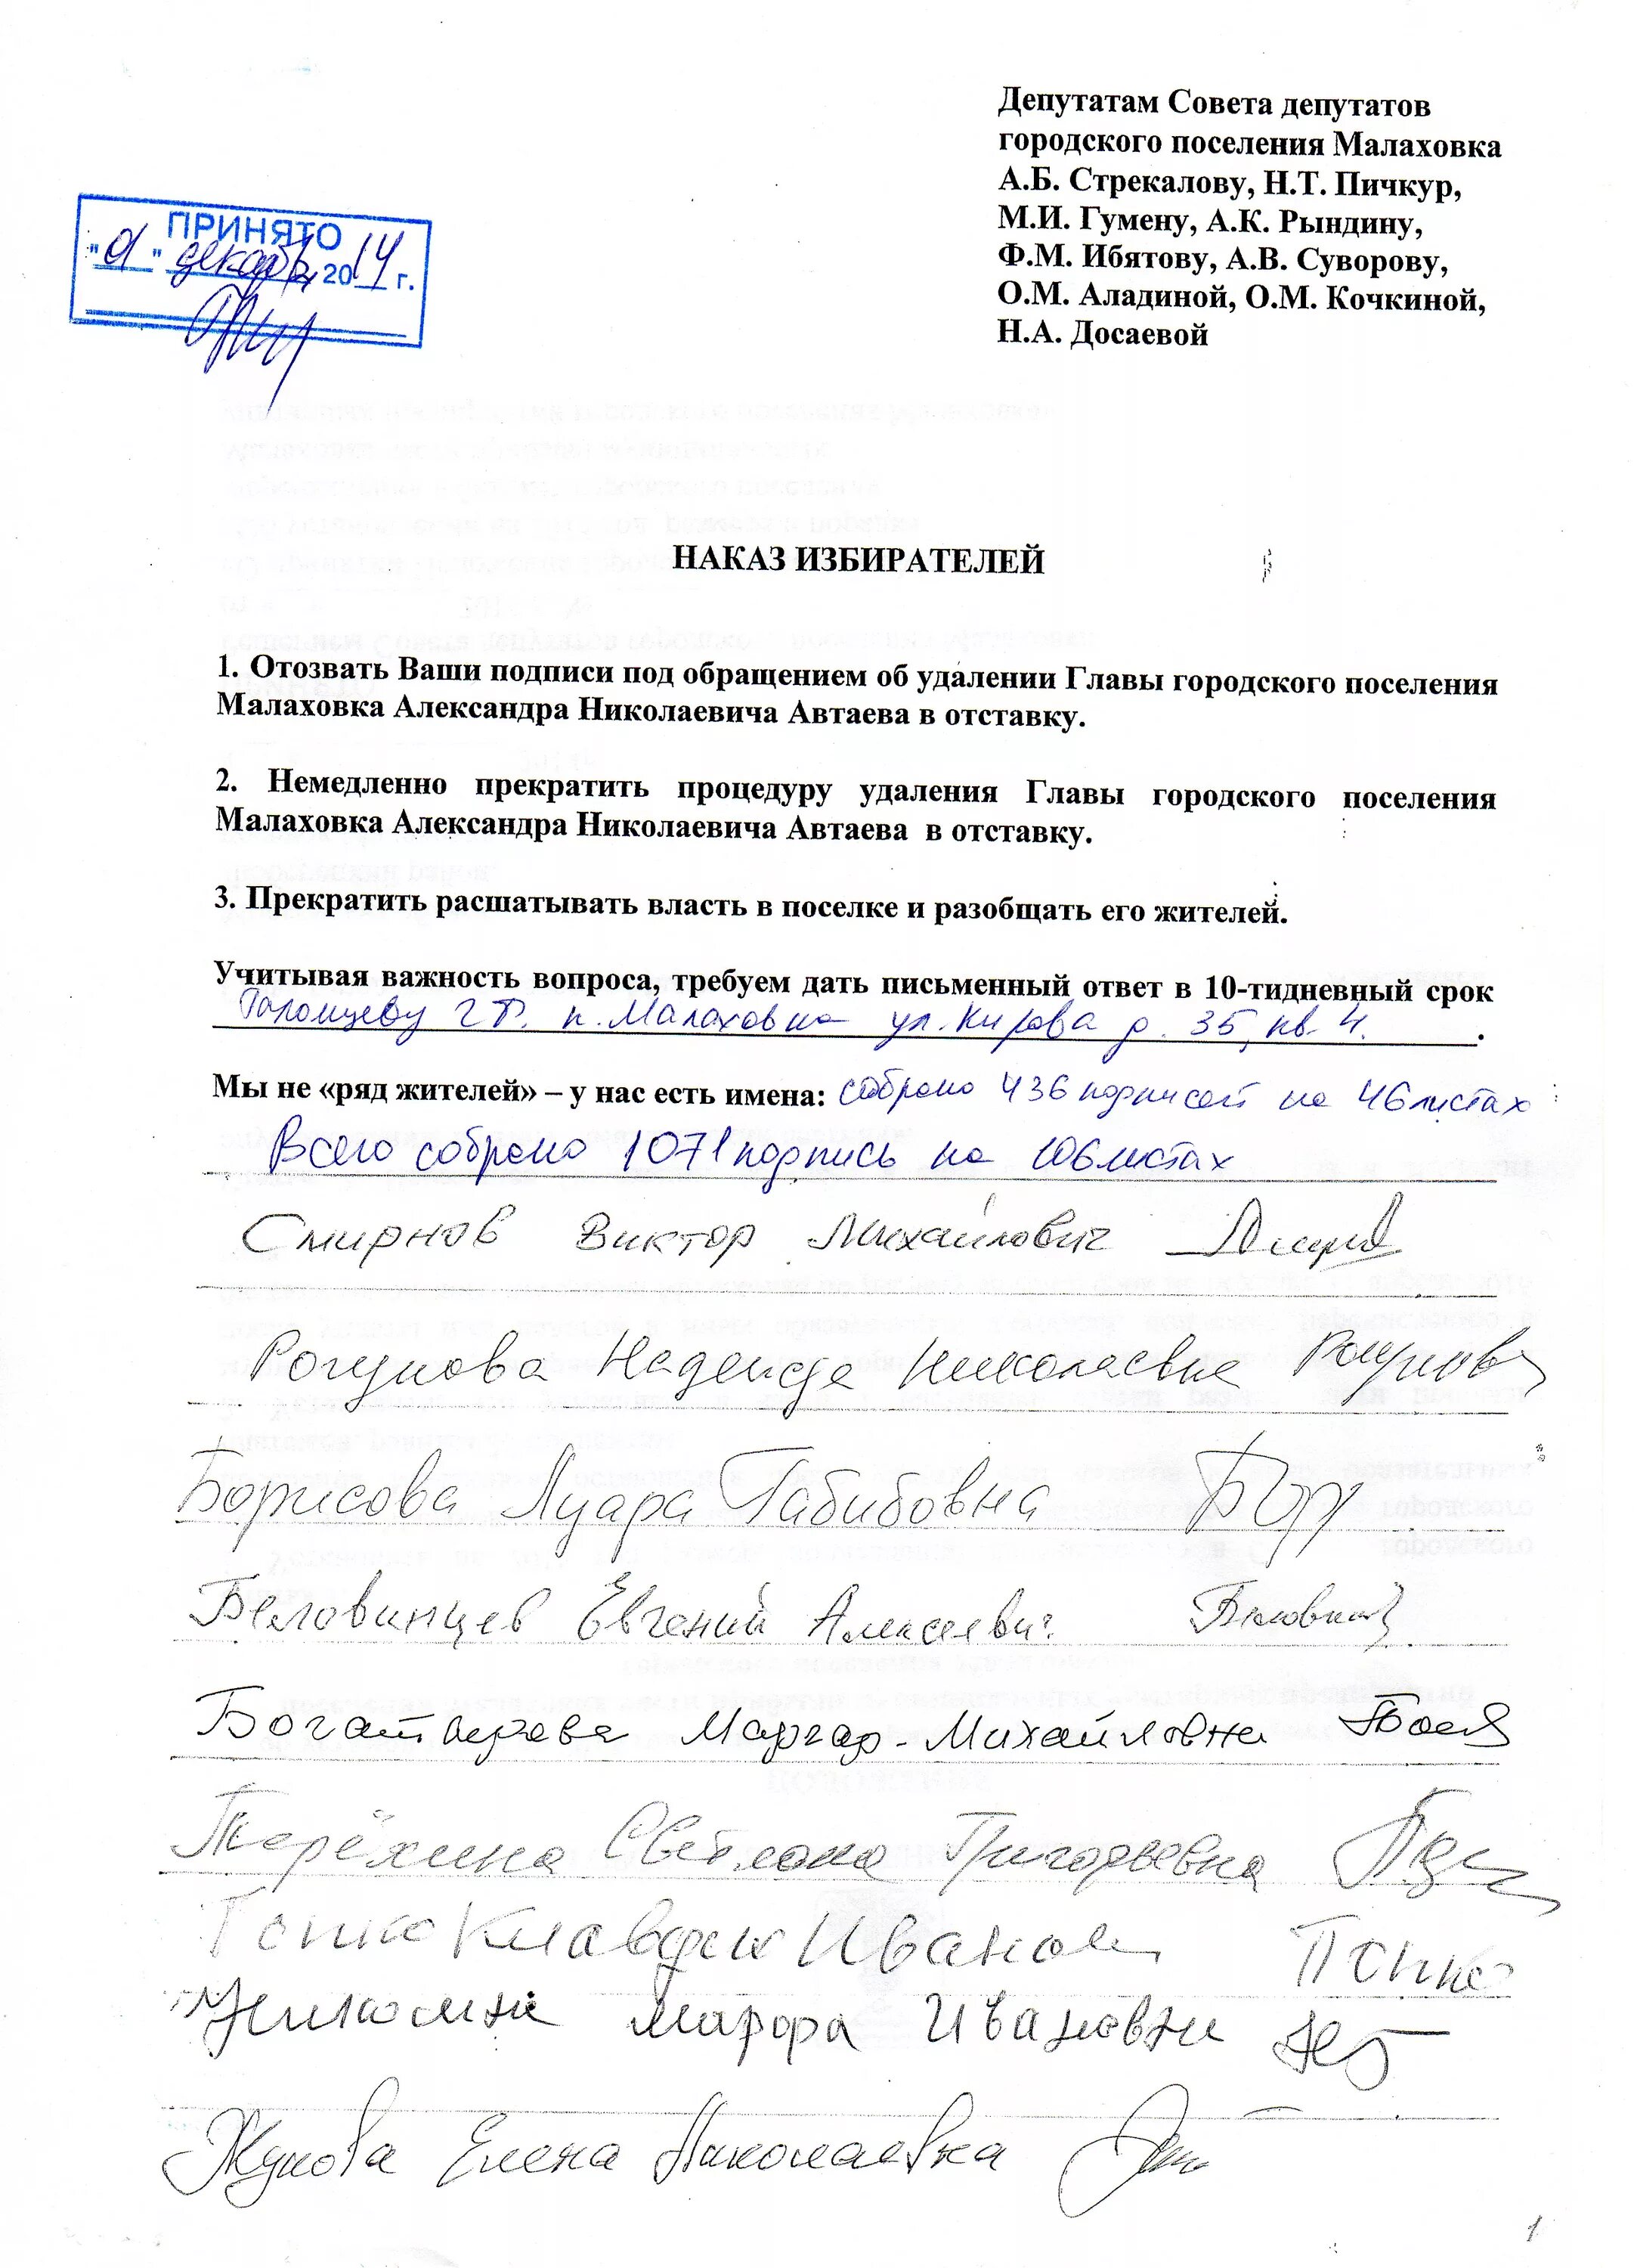 Депутатам Совета депутатов
городского поселения Малаховка
А.Б. Стрекалову, Н.Т. Пичкур,
М.И. Гумену, А.К. Рындину,
Ф.М. Ибятову, А.В. Суворову,
О.М. Аладиной, О.М. Кочкиной,
Н.А. Досаевой
ПРИНЯТО
"01" декабря 2014 г.
НАКАЗ ИЗБИРАТЕЛЕЙ
1. Отозвать Ваши подписи под обращением об удалении Главы городского поселения
Малаховка Александра Николаевича Автаева в отставку.
2. Немедленно прекратить процедуру удаления Главы городского поселения
Малаховка Александра Николаевича Автаева в отставку.
3. Прекратить расшатывать власть в поселке и разобщать его жителей.
Учитывая важность вопроса, требуем дать письменный ответ в 10-тидневный срок
п. Малаховка ул. Кирова д. 35, кв. 4.
Мы не «ряд жителей» – у нас есть имена: собрано 436 подписей на 46 листах
Всего собрано 1071 подпись на 106 листах
Смирнов Виктор Михайлович
Рогунова Надежда Николаевна
Борисова Луара Габибовна
Беловинцев Евгений Алексеевич
Михайловна
Терёхина Светлана Григорьевна
Ивановна
Жукова Елена Николаевна
1